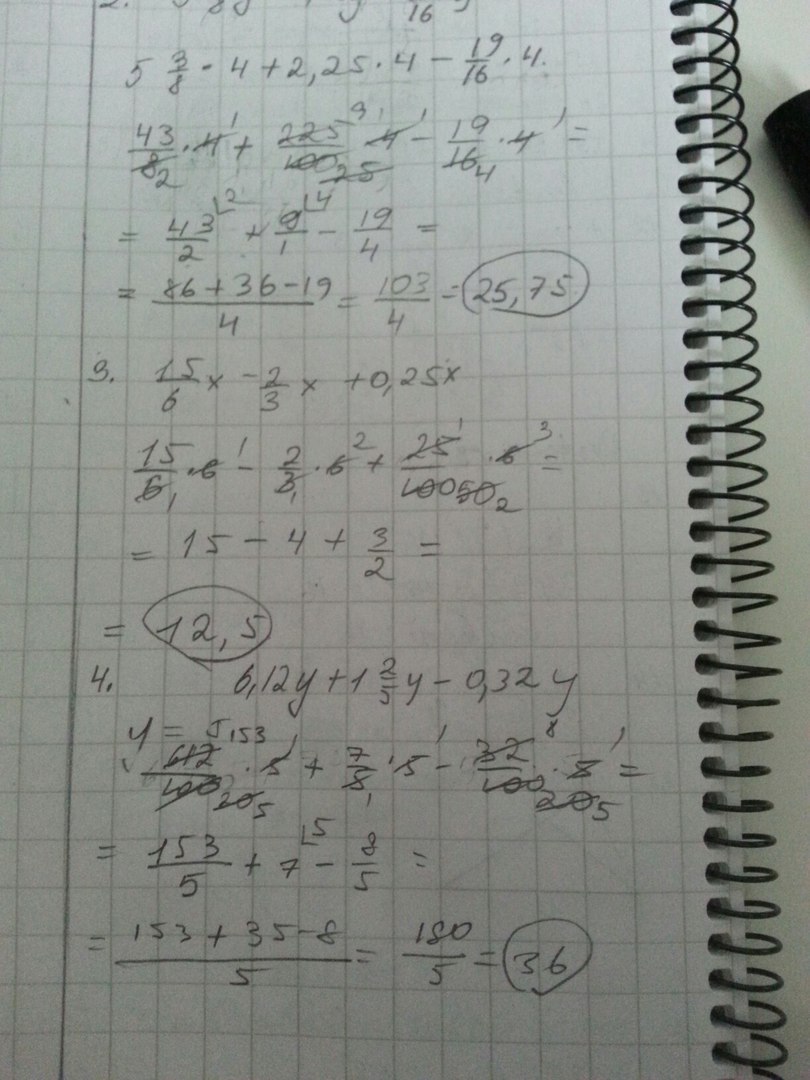 5 3/8 · 4 + 2,25 · 4 - 19/16 · 4.
43/8 2 · 4 1 + 225 9/100 25 · 4 1 - 19/16 4 · 4 1 =
= 43/2 ⌊2 + 9/1 ⌊4 - 19/4 =
= (86 + 36 - 19)/4 = 103/4 = 25,75
3. 15/6 x - 2/3 x + 0,25x
15/6 1 · 6 1 - 2/3 1 · 6 2 + 25 1/100 50 2 · 6 3 =
= 15 - 4 + 3/2 =
= 12,5
4. 6,12y + 1 2/5 y - 0,32y
y = 5
612 153/100 20 5 · 5 1 + 7/5 1 · 5 1 - 32 8/100 20 5 · 5 1 =
= 153/5 + 7 ⌊5 - 8/5 =
= (153 + 35 - 8)/5 = 180/5 = 36